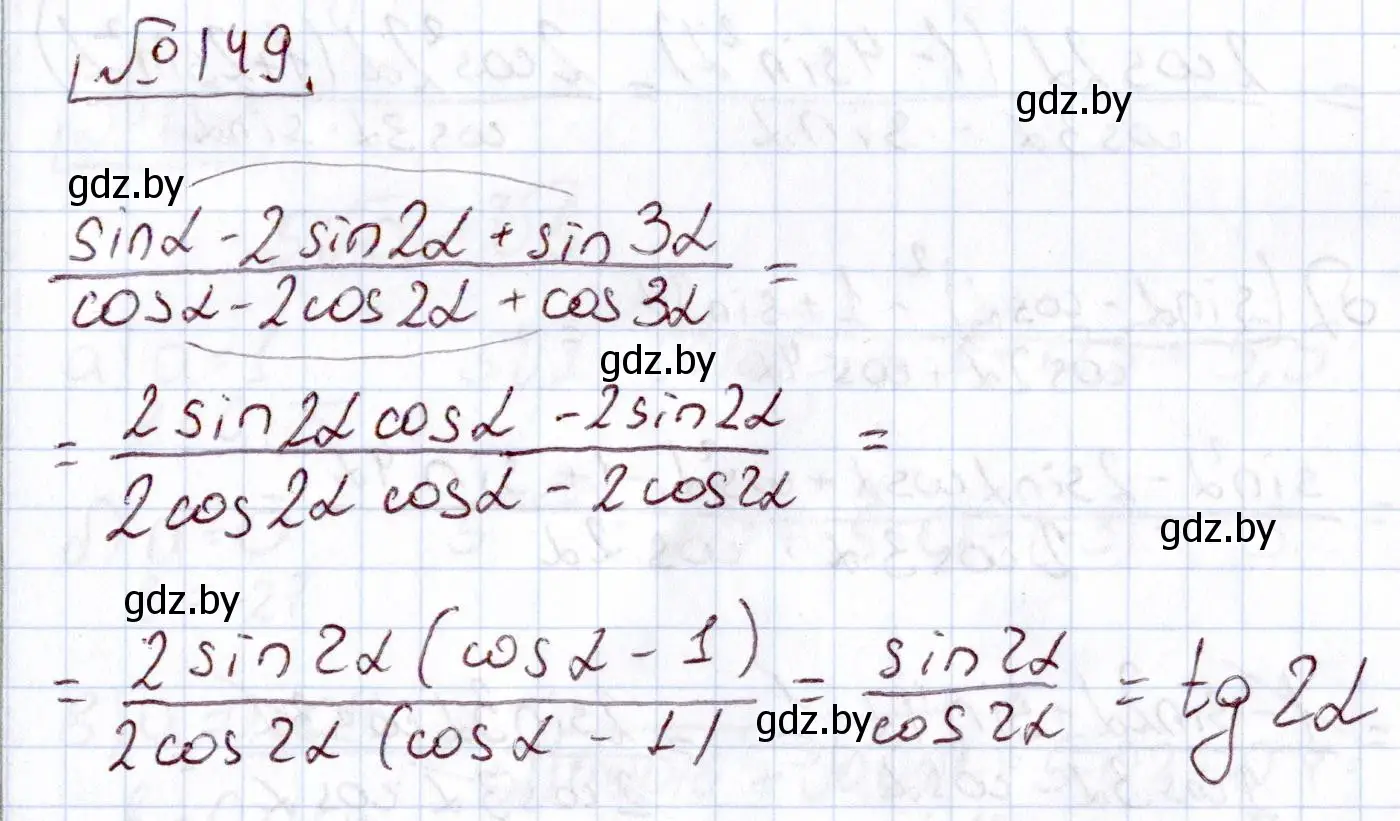 № 149.
gdz.by
gdz.by
sinα - 2 sin2α + sin 3α
cosα - 2cos2α + cos3α
=
gdz.by
= 2 sin2α cosα - 2sin2α
2cos2α cosα - 2cos2α
=
gdz.by
gdz.by
= 2 sin2α (cosα - 1)
2cos2α (cosα - 1)
= sin2α
cos2α
= tg2α
gdz.by